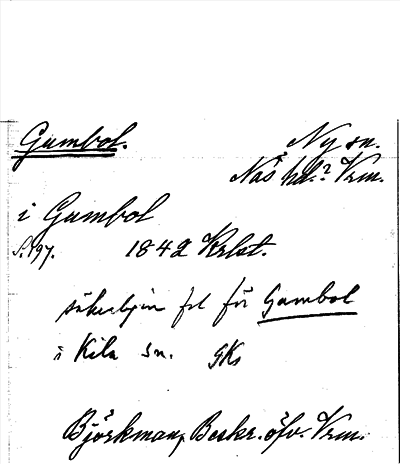 Gumbol.
Ny sn.
Näs hd.? Vrm.
i Gumbol
S. 197. 1842 Krlst.
säkerligen fel för Gambol
i Kila sn. GKs
Björkman, Beskr. öfv. Vrm.